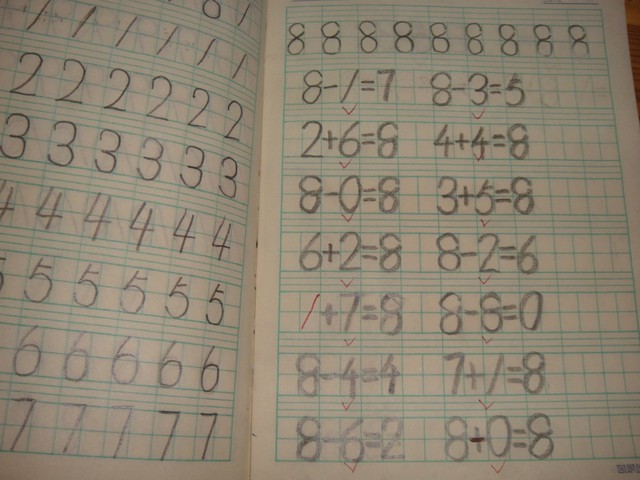 8 1
1 1 1 1 1 1
2 2 2 2 2 2
3 3 3 3 3 3
4 4 4 4 4 4
5 5 5 5 5 5
6 6 6 6 6
7 7 7 7 7
8 8 8 8 8 8 8 8 8
8-1=7 8-3=5
2+6=8 4+4=8
8-0=8 3+5=8
6+2=8 8-2=6
1+7=8 8-8=0
8-4=4 7+1=8
8-6=2 8+0=8